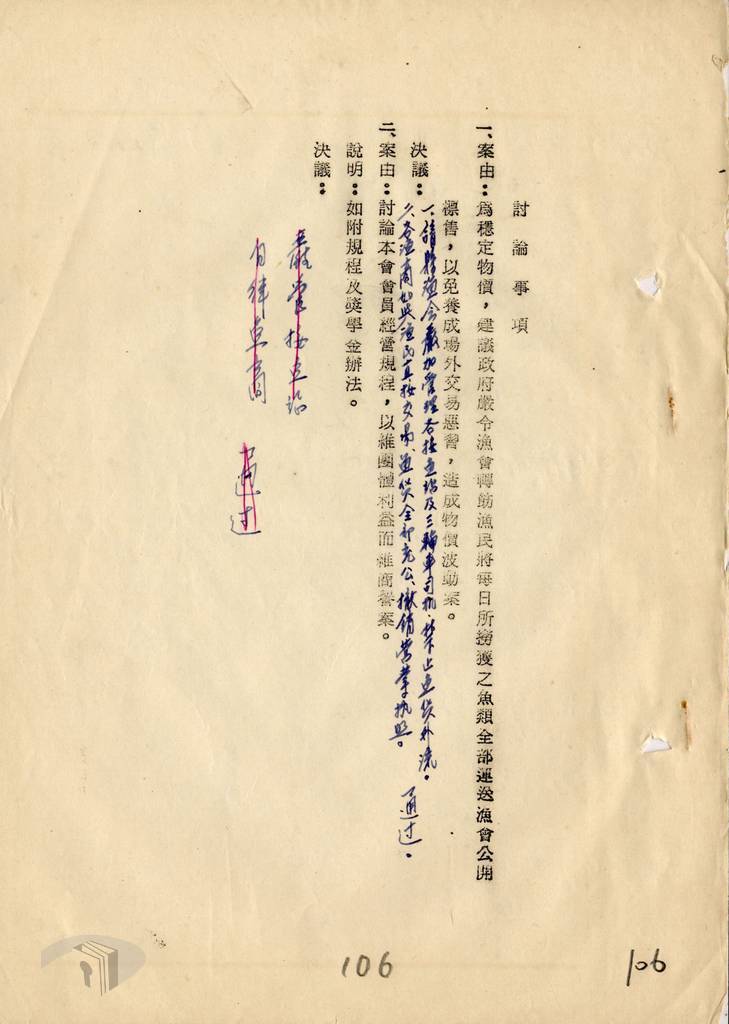 討論事項
一、案由：為穩定物價，建議政府嚴令漁會轉飭漁民將每日所撈獲之魚類全部運送漁會公開
標售，以免養成場外交易惡習，造成物價波動案。
決議：一、請縣漁会嚴加管理各接魚站及三輪車司机，禁止魚貨外流。
2、各漁商如與漁民直接交易，魚貨全部充公，撤銷營業执照。 通过。
二、案由：討論本會會員經營規程，以維團體利益而維商譽案。
說明：如附規程及獎學金辦法。
決議：
嚴管接魚站
自律魚商
通过
106
106